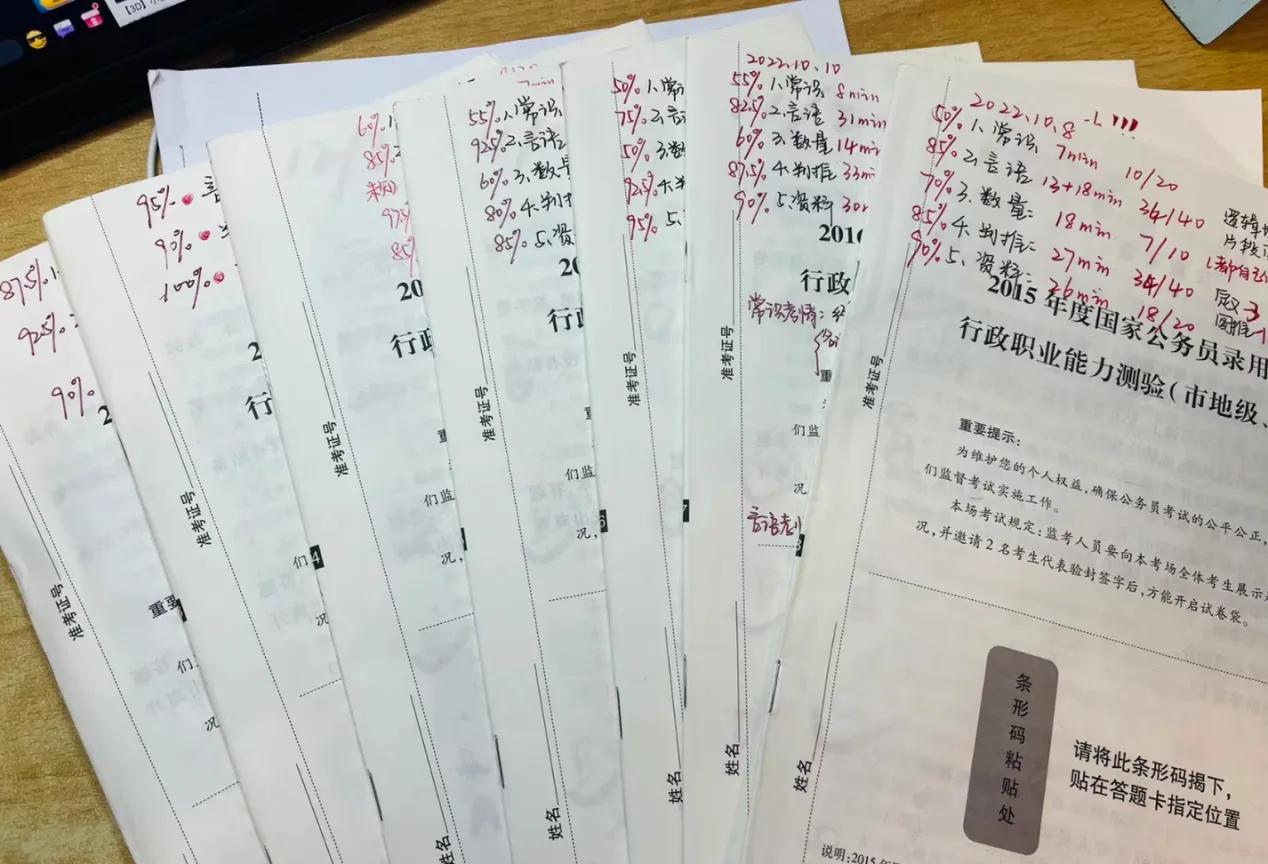 【3D】
87.5%
92.5%
90%
准考证号
重要
们
况
95%
90%
100%
行
准考证号
们
4
况
60%
85%
97%
85%
20
行政
准考证号
们监
况,
姓名
55% 1.常识
92.5% 2.言语
60% 3.数量
80% 4.判推
85% 5.资
20
行政
准考证号
们监
6
况,
姓名
50% 1.常识
75% 2.言
50% 3.数
92.5% 4.判
95% 5.
准考证号
7
姓名
2022.10.10
55% 1.常识 8min
82.5% 2.言语 31min
60% 3.数量 14min
87.5% 4.判推 33min
90% 5.资料
2016
行政
常识考情:
准考证号
重
们监
况
言语考
8
姓名
2022.10.8
50% 1.常识 7min 10/20
85% 2.言语 13+18min 34/40
70% 3.数量: 18min 7/10
85% 4.判推: 27min 34/40
90% 5.资料: 26min 18/20
逻辑
片段
图推
2015年度国家公务员录用
行政职业能力测验(市地级、
准考证号
重要提示:
为维护您的个人权益,确保公务员考试的公平公正,
们监督考试实施工作。
本场考试规定:监考人员要向本考场全体考生展示
况,并邀请2名考生代表验封签字后,方能开启试卷袋。
条形码粘贴处
请将此条形码揭下,
贴在答题卡指定位置
姓名
说明:2015年